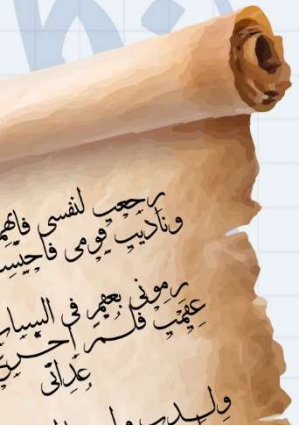 رجعت لنفسي فاتهم
وناديت قومي فاحتسب
رموني بعقم في الشباب
عقمت فلم أجزع
عداتي
ولدت ولما